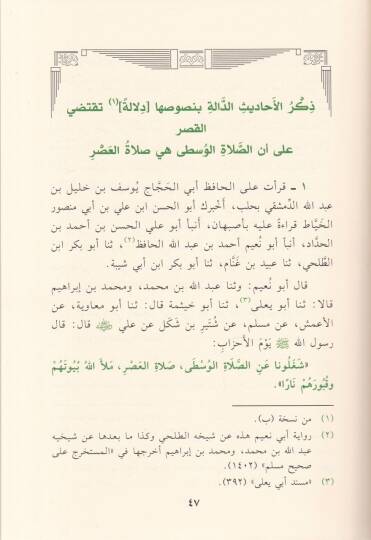 ذِكْرُ الأَحاديثِ الدَّالةِ بنصوصها [دِلالةً](١) تقتضي
القصر
على أن الصَّلاةِ الوُسطى هي صلاةُ العَصْرِ
١ ـ قرأت على الحافظ أبي الحَجَّاج يُوسف بن خليل بن
عبد الله الدِّمشقي بحلب، أخْبرك أبو الحسن ابن علي بن أبي منصور
الخَيَّاط قراءةً عليه بأصبهان، أنبأ أبو علي الحسن بن أحمد بن
الحدَّاد، أنبأ أبو نُعيم أحمد بن عبد الله الحافظ(٢)، ثنا أبو بكر ابن
الطَّلحي، ثنا عبيد بن غَنَّام، ثنا أبو بكر ابن أبي شيبة.
قال أبو نُعيم: وثنا عبد الله بن محمد، ومحمد بن إبراهيم
قالا: ثنا أبو يعلى(٣)، ثنا أبو خيثمة قال: ثنا أبو معاوية، عن
الأعمش، عن مسلم، عن شُتَيرِ بن شَكَل عن علي قال: قال
رسول الله ﷺ يَوْمَ الأحزابِ:
«شَغَلُونا عَنِ الصَّلَاةِ الوُسْطَى، صَلاةِ العَصْرِ، مَلأَ اللهُ بُيُوتَهُمْ
وقُبُورَهُمْ نَارًا».
(١) من نسخة (ب).
(٢) رواية أبي نعيم هذه عن شيخه الطلحي وكذا ما بعدها عن شيخيه
عبد الله بن محمد، ومحمد بن إبراهيم أخرجها في «المستخرج على
صحيح مسلم» (١٤٠٢).
(٣) «مسند أبي يعلى» (٣٩٢).
٤٧